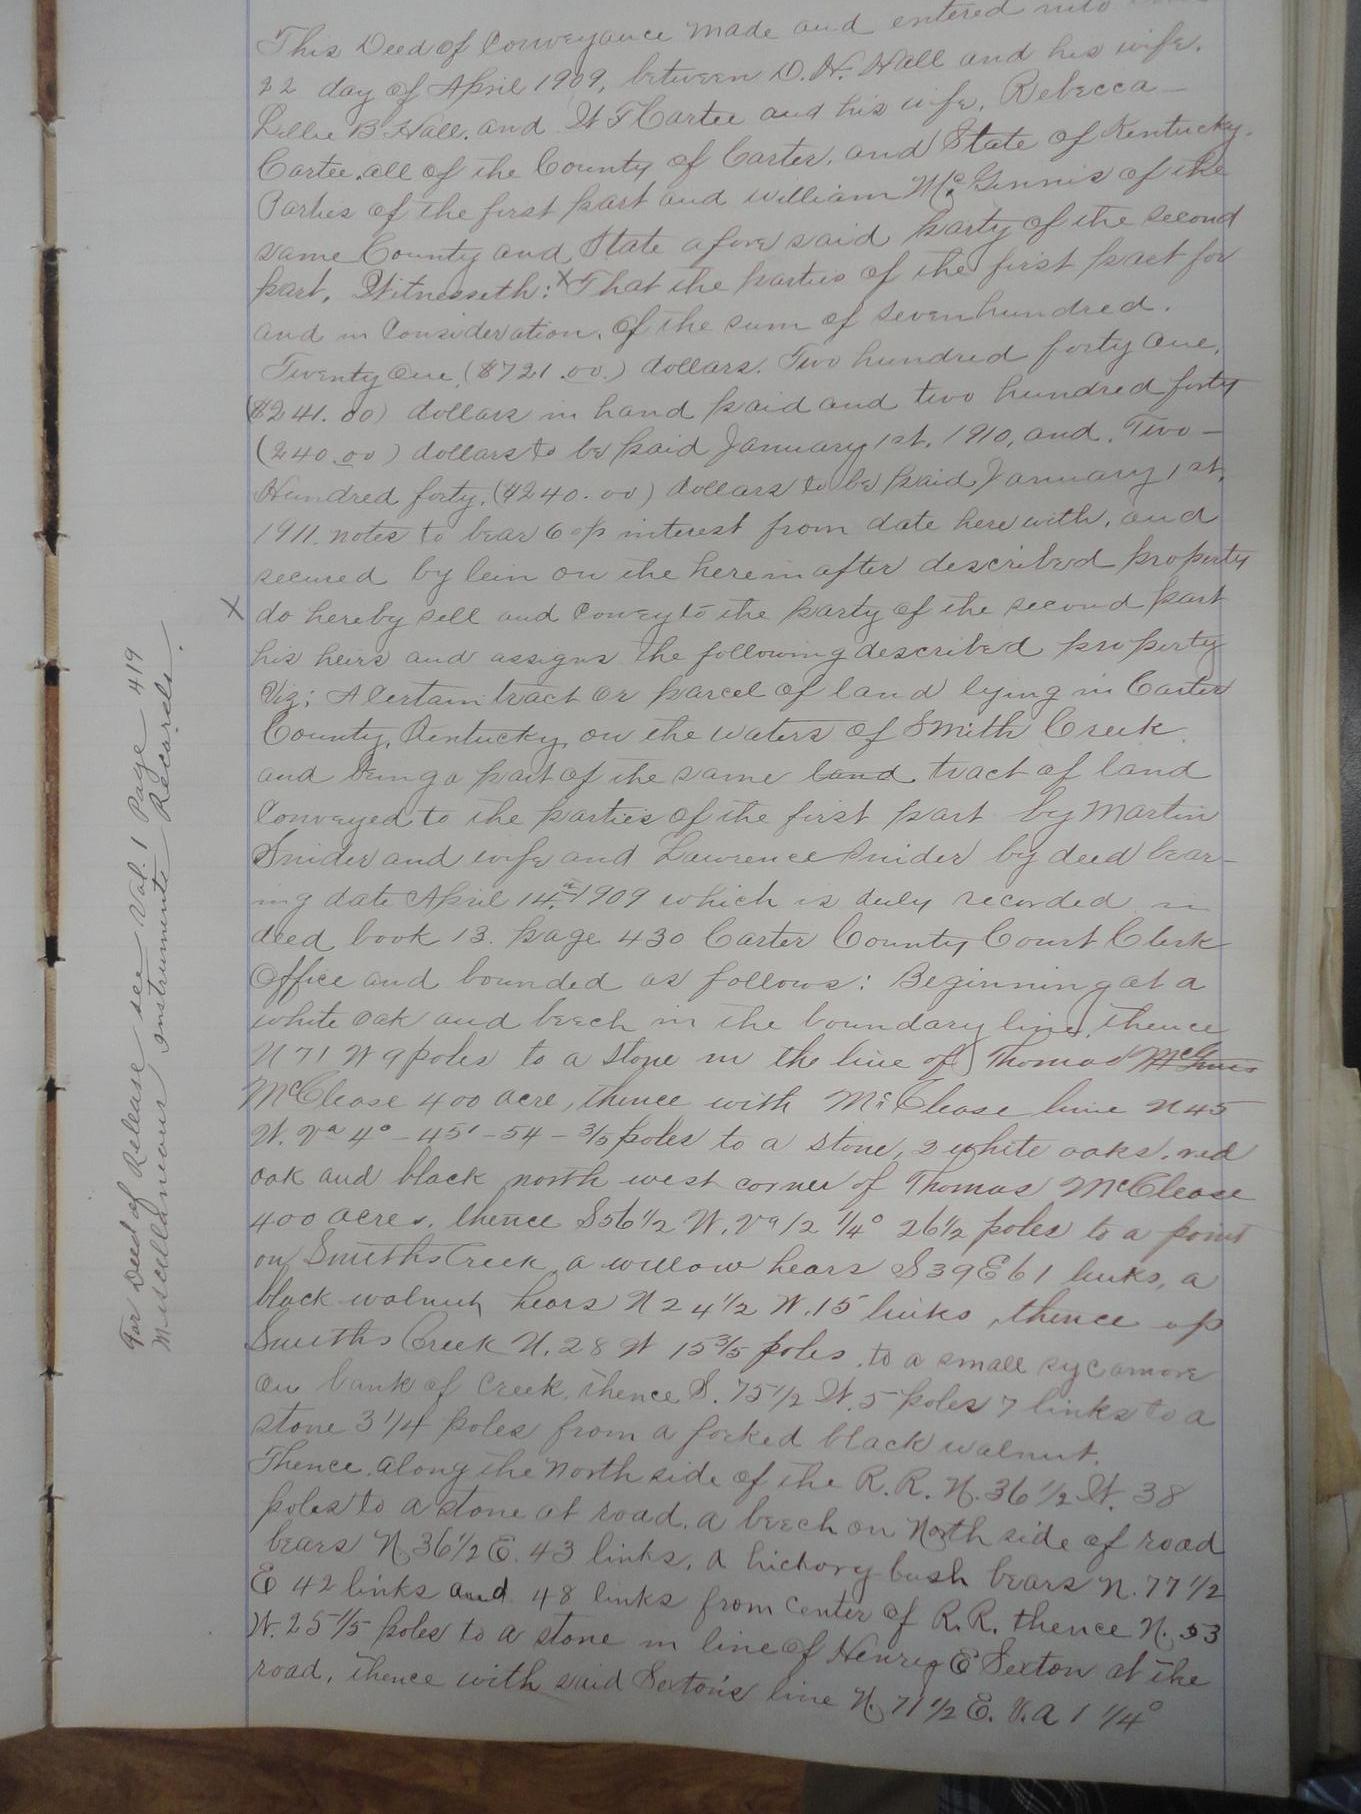 This Deed of Conveyance made and entered into
22 day of April 1909, between D. H. Hall and his wife.
Lillie B Hall. and W F Cartee and his wife, Rebecca
Cartee. all of the County of Carter. and State of Kentucky.
Parties of the first part and william McGinnis of the
same County and State afore said party of the second
part. Witnesseth: x That the parties of the first part for
and in Consideration. of the sum of seven hundred.
Twenty One. ($721.00.) dollars. Two hundred forty One.
($241.00) dollars in hand paid and two hundred forty
(240.00) dollars to be paid January 1st. 1910, and. Two-
Hundred forty. ($240.00) dollars to be paid January 1st.
1911. notes to bear 6 op interest from date here with. and
secured by lien on the herein after described property
x do hereby sell and Convey to the party of the second part
his heirs and assigns the following described property
Viz; A Certain tract or parcel of land lying in Carter
County, Kentucky, on the waters of Smith Creek
and being a part of the same land tract of land
Conveyed to the parties of the first part by Martin
Snider and wife and Lawrence Snider by deed bear-
ing date April 14th 1909 which is duly recorded in
deed book 13. page 430 Carter County Court Clerk
Office and bounded as follows: Beginning at a
white oak and beech in the boundary line, thence
N 71 W 9 poles to a stone in the line of Thomas McGinnis
McClease 400 acre, thence with McClease line N 45
W. Va 4° - 45' - 54 - 3/5 poles to a stone, 2 white oaks, red
oak and black north west corner of Thomas McClease
400 acres, thence S 56 1/2 W. Va 12 1/4° 26 1/2 poles to a point
on Smiths Creek a willow hears S 39 E 61 links, a
black walnut hears N 24 1/2 W. 15 links, thence up
Smiths Creek N. 28 W 15 3/5 poles, to a small sycamore
on bank of creek, thence S. 75 1/2 W. 5 poles 7 links to a
stone 3 1/4 poles from a forked black walnut.
Thence along the North side of the R.R. N. 36 1/2 W. 38
poles to a stone at road. a beech on North side of road
bears N 36 1/2 E. 43 links, a hickory bush bears N. 77 1/2
E 42 links and 48 links from Center of R.R. thence N. 53
W. 25 1/5 poles to a stone in line of Henry E Sexton at the
road, thence with said Sexton's line N. 71 1/2 E. V.A 1 1/4°
For Deed of Release see Vol. 1 Page 419
Miscellaneous Instruments Records.